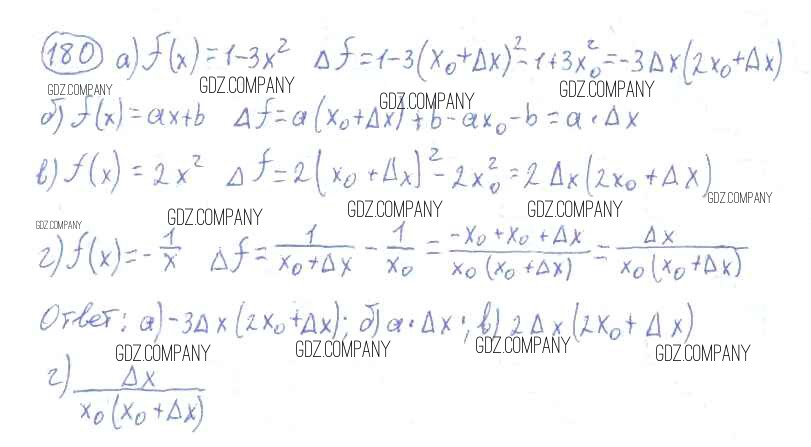 180 а) f(x) = 1-3x² Δf = 1-3(x₀+Δx)²-1+3x₀² = -3Δx(2x₀+Δx)
GDZ.COMPANY GDZ.COMPANY GDZ.COMPANY GDZ.COMPANY
б) f(x) = ax+b Δf = a(x₀+Δx)+b-ax₀-b = a·Δx
в) f(x) = 2x² Δf = 2(x₀+Δx)²-2x₀² = 2Δx(2x₀+Δx)
GDZ.COMPANY GDZ.COMPANY GDZ.COMPANY GDZ.COMPANY GDZ.COMPANY
г) f(x) = -1/x Δf = 1/(x₀+Δx) - 1/x₀ = (-x₀+x₀+Δx)/(x₀(x₀+Δx)) = Δx/(x₀(x₀+Δx))
Ответ: а) -3Δx(2x₀+Δx); б) a·Δx; в) 2Δx(2x₀+Δx)
GDZ.COMPANY GDZ.COMPANY GDZ.COMPANY GDZ.COMPANY
г) Δx/(x₀(x₀+Δx))